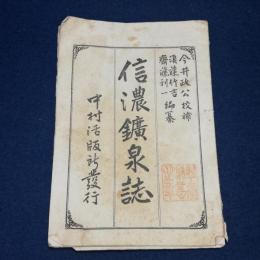 今井政公校補
須藤竹吉
齋藤利一
編纂
信濃鑛泉誌
中村活版所發行